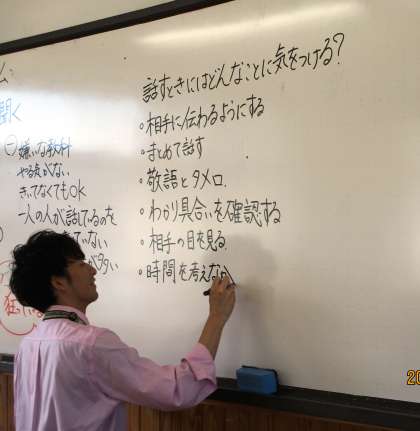 話すときにはどんなことに気をつける?
・相手に伝わるようにする
・まとめて話す
・敬語とタメ口
・わかり具合いを確認する
・相手の目を見る
・時間を考えな
聞く
嫌いな教科
やる気がない
きいてなくてもOK
一人の人が話しているのを
ていない
20